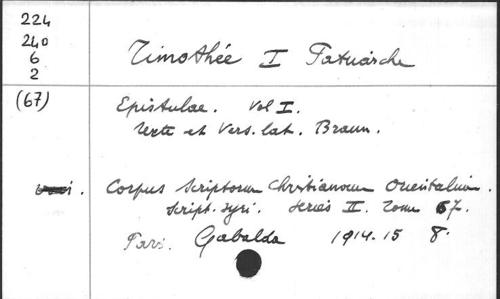 224
240
6
2
Timothée I Patriarche
(67)
Epistulae. Vol I.
texte et Vers. lat. Braun.
Corpus Scriptorum Christianorum Orientalium.
Script. syri. Series II. Tome 67.
Pari. Gabalda 1914-15 8.